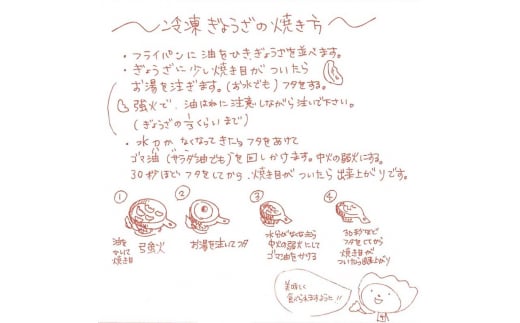 冷凍ぎょうざの焼き方
・フライパンに油をひき、ぎょうざを並べます。
・ぎょうざに少し焼き目がついたら
お湯を注ぎます。(お水でも)フタをする。
強火で、油はねに注意しながら注いで下さい。
(ぎょうざの1/3くらいまで)
・水分がなくなってきたらフタをあけて
ゴマ油(サラダ油でも)を回しかけます。中火の弱火にする。
30秒ほどフタをしてから、焼き目がついたら出来上がりです。
①
油を
かいて
焼き目
弓強火
②
お湯を注いでフタ
③
水分がなくなったら
中火の弱火にして
ゴマ油をかける
④
30秒など
フタをしてから
焼き目が
ついたら出来上がり
美味しく
食べられますように!!